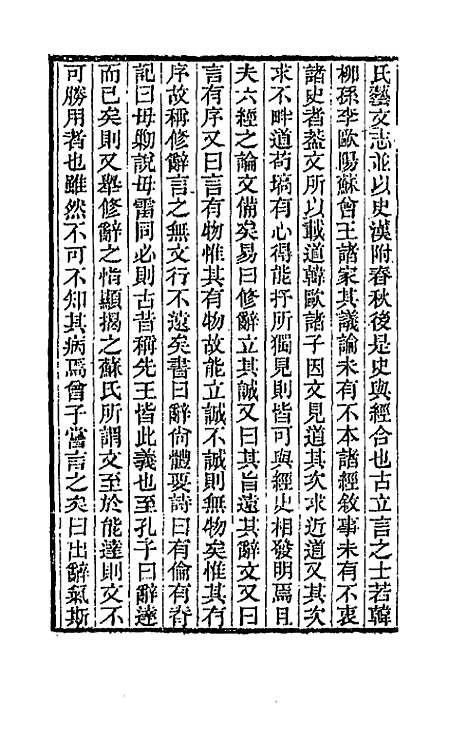 氏藝文志並以史漢附春秋後是史與經合也古立言之士若韓
柳孫李歐陽蘇曾王諸家其議論未有不本諸經敘事未有不衷
諸史者葢文所以載道韓歐諸子因文見道其次求近道又其次
求不畔道苟塙有心得能抒所獨見則皆可與經史相發明焉且
夫六經之論文備矣易曰修辭立其誠又曰其旨遠其辭文又曰
言有序又曰言有物惟其有物故能立誠不誠則無物矣惟其有
序故稱修辭言之無文行不遠矣書曰辭尙體要詩曰有倫有脊
記曰毋勦說毋雷同必則古昔稱先王皆此義也至孔子曰辭達
而已矣則又舉修辭之恉顯揭之蘇氏所謂文至於能達則文不
可勝用者也雖然不可不知其病焉曾子嘗言之矣曰出辭氣斯